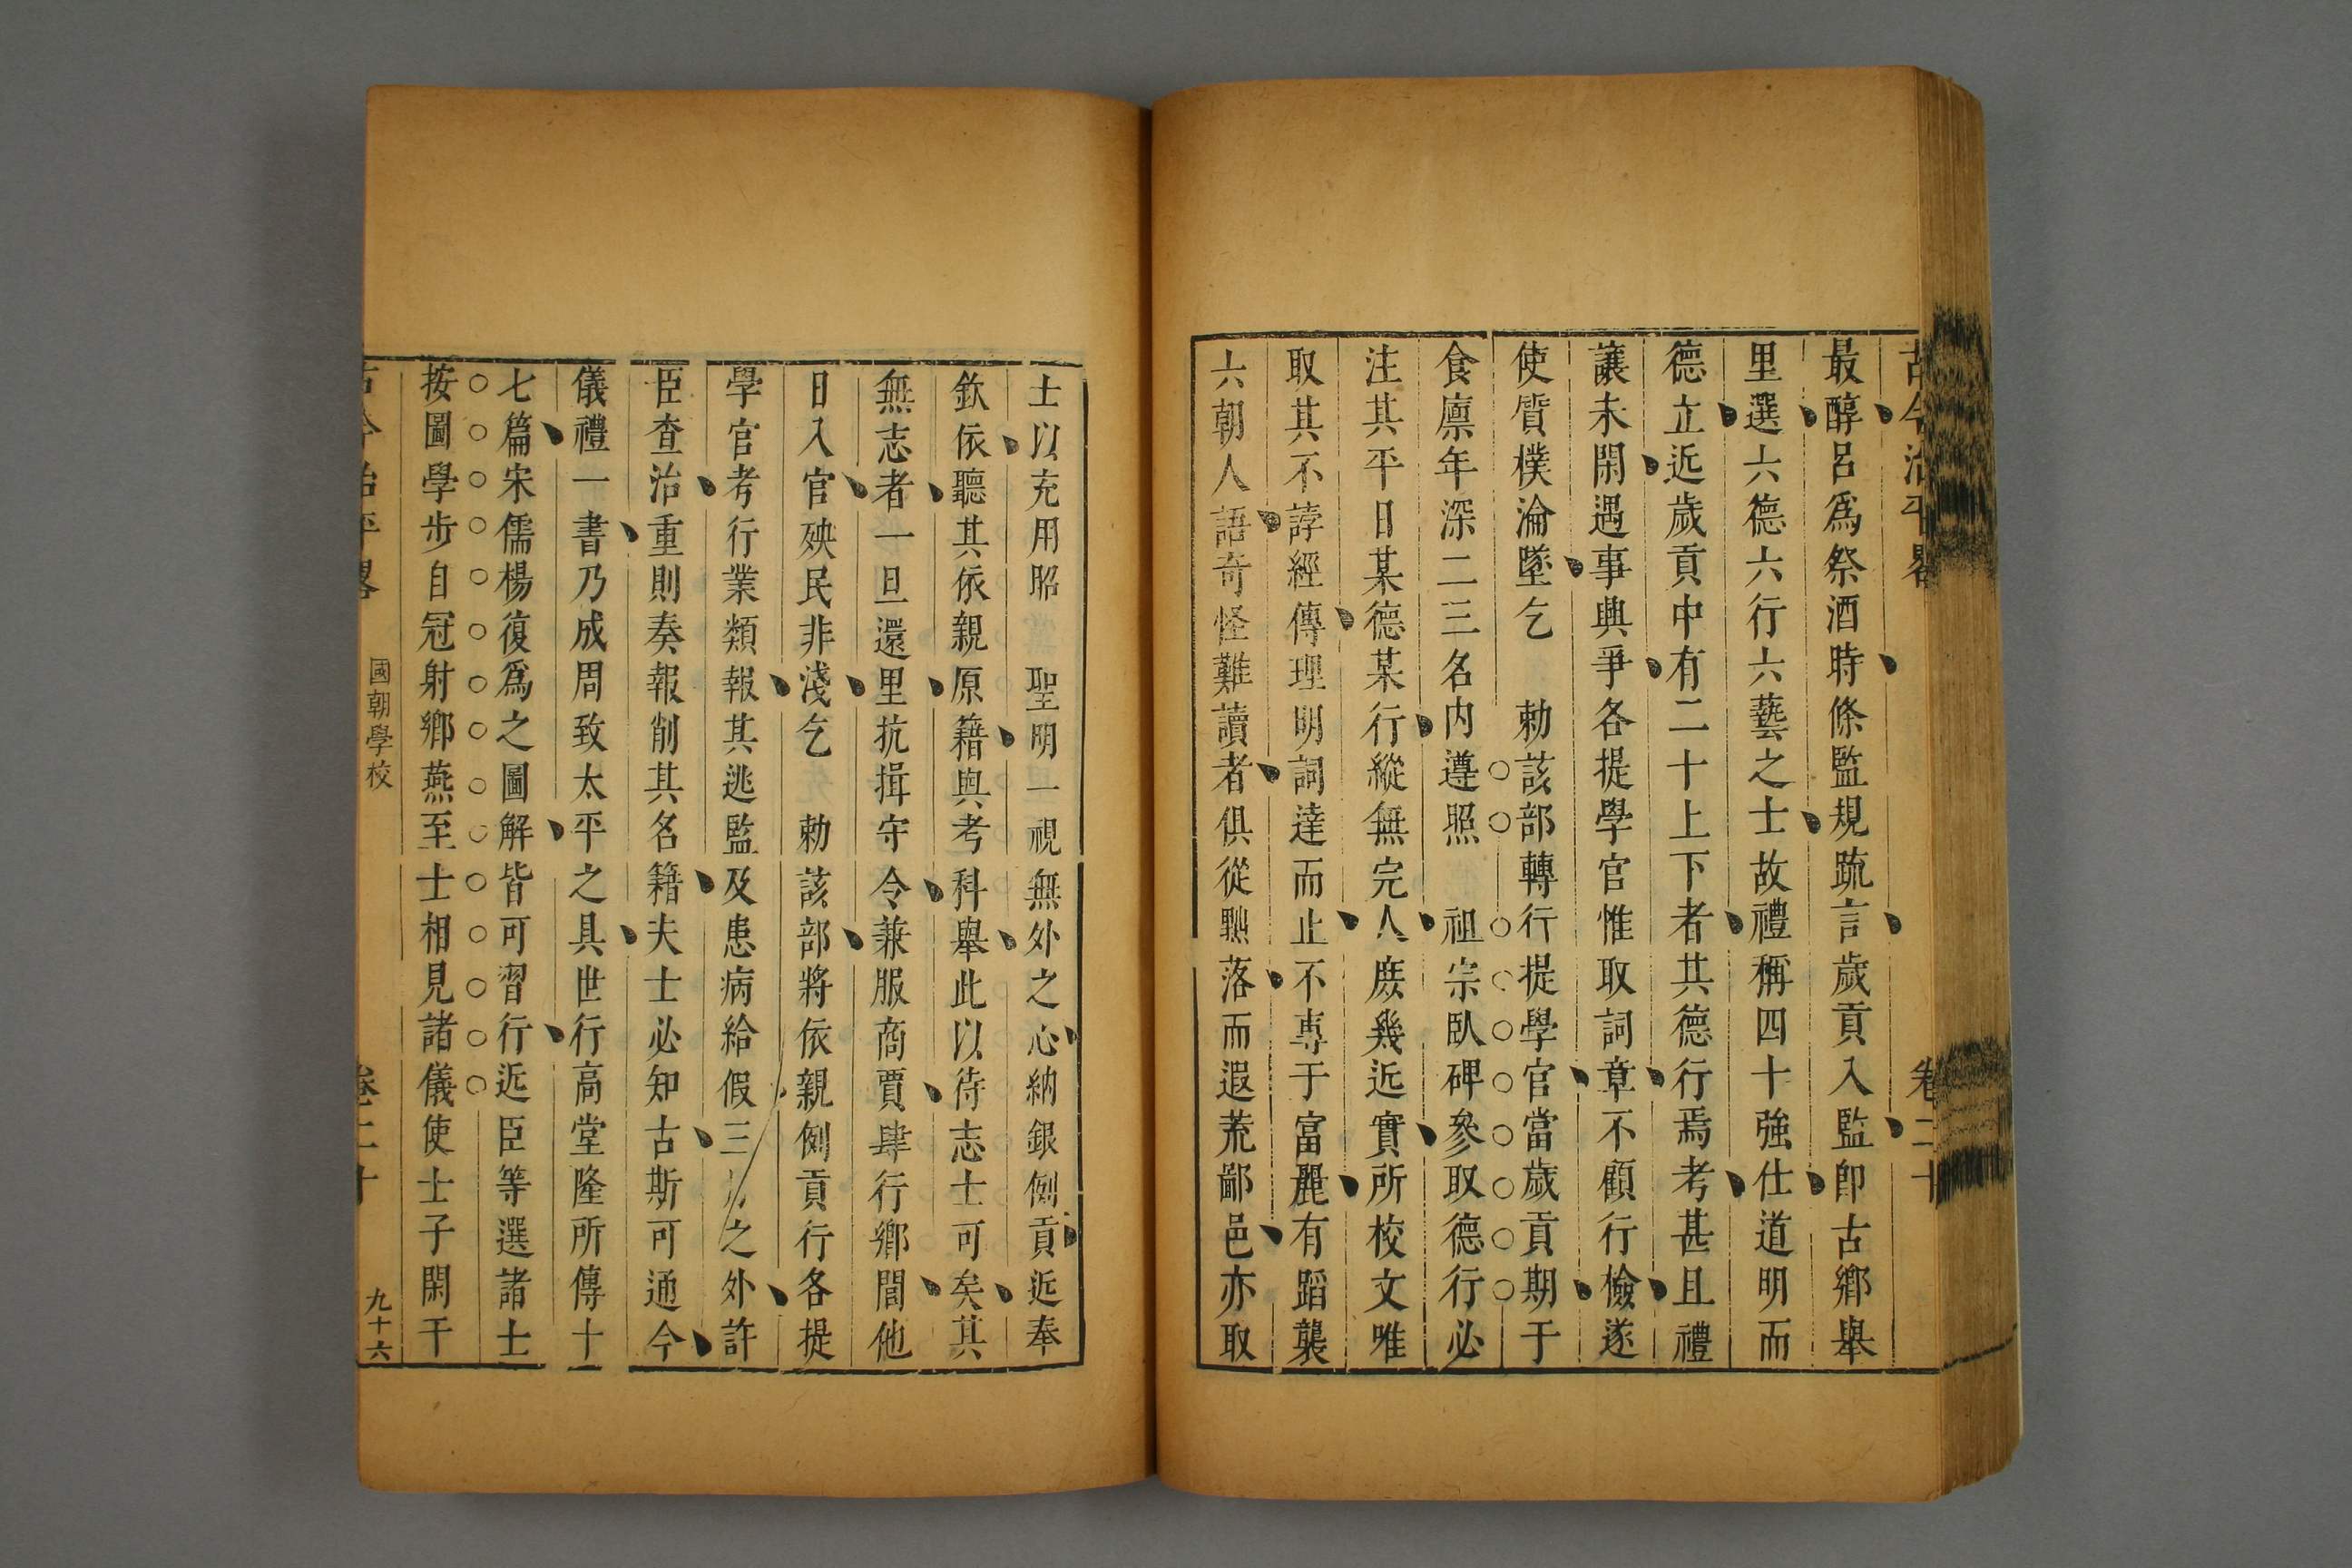 古今治平畧 卷二十
最醇呂爲祭酒時條監規疏言歲貢入監卽古鄉舉
里選六德六行六藝之士故禮稱四十強仕道明而
德立近歲貢中有二十上下者其德行焉考甚且禮
讓未閑遇事輿爭各提學官惟取詞章不顧行檢遂
使質樸淪墜乞 勅該部轉行提學官當歲貢期于
食廩年深二三名内遵照 祖宗臥碑參取德行必
注其平日某德某行縱無完人庶幾近實所校文唯
取其不諄經傳理明詞達而止不專于富麗有蹈襲
六朝人語奇怪難讀者俱從黜落而遐荒鄙邑亦取
士以充用昭 聖明一視無外之心納銀例貢近奉
欽依聽其依親原籍與考科舉此以待志士可矣其
無志者一旦還里抗揖守令兼服商賈肆行鄉閭他
日入官殃民非淺乞 勅該部將依親例貢行各提
學官考行業類報其逃監及患病給假三之外許
臣查治重則奏報削其名籍夫士必知古斯可通今
儀禮一書乃成周致太平之具世行高堂隆所傳十
七篇宋儒楊復爲之圖解皆可習行近臣等選諸士
按圖學步自冠射鄉燕至士相見諸儀使士子閑干
古今治平畧 國朝學校 卷二十 九十六